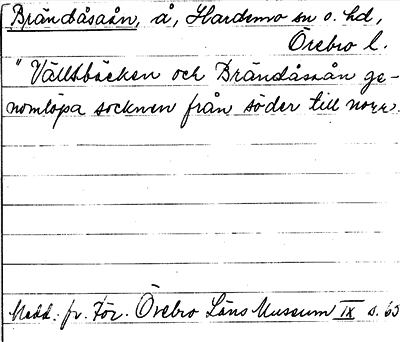 Brändåsaån, å, Hardemo sn o. hd,
Örebro l.
"Vällsbäcken och Brändåsaån ge-
nomlöpa socknen från söder till norr.
Medd. fr. För. Örebro Läns Museum IX s. 63